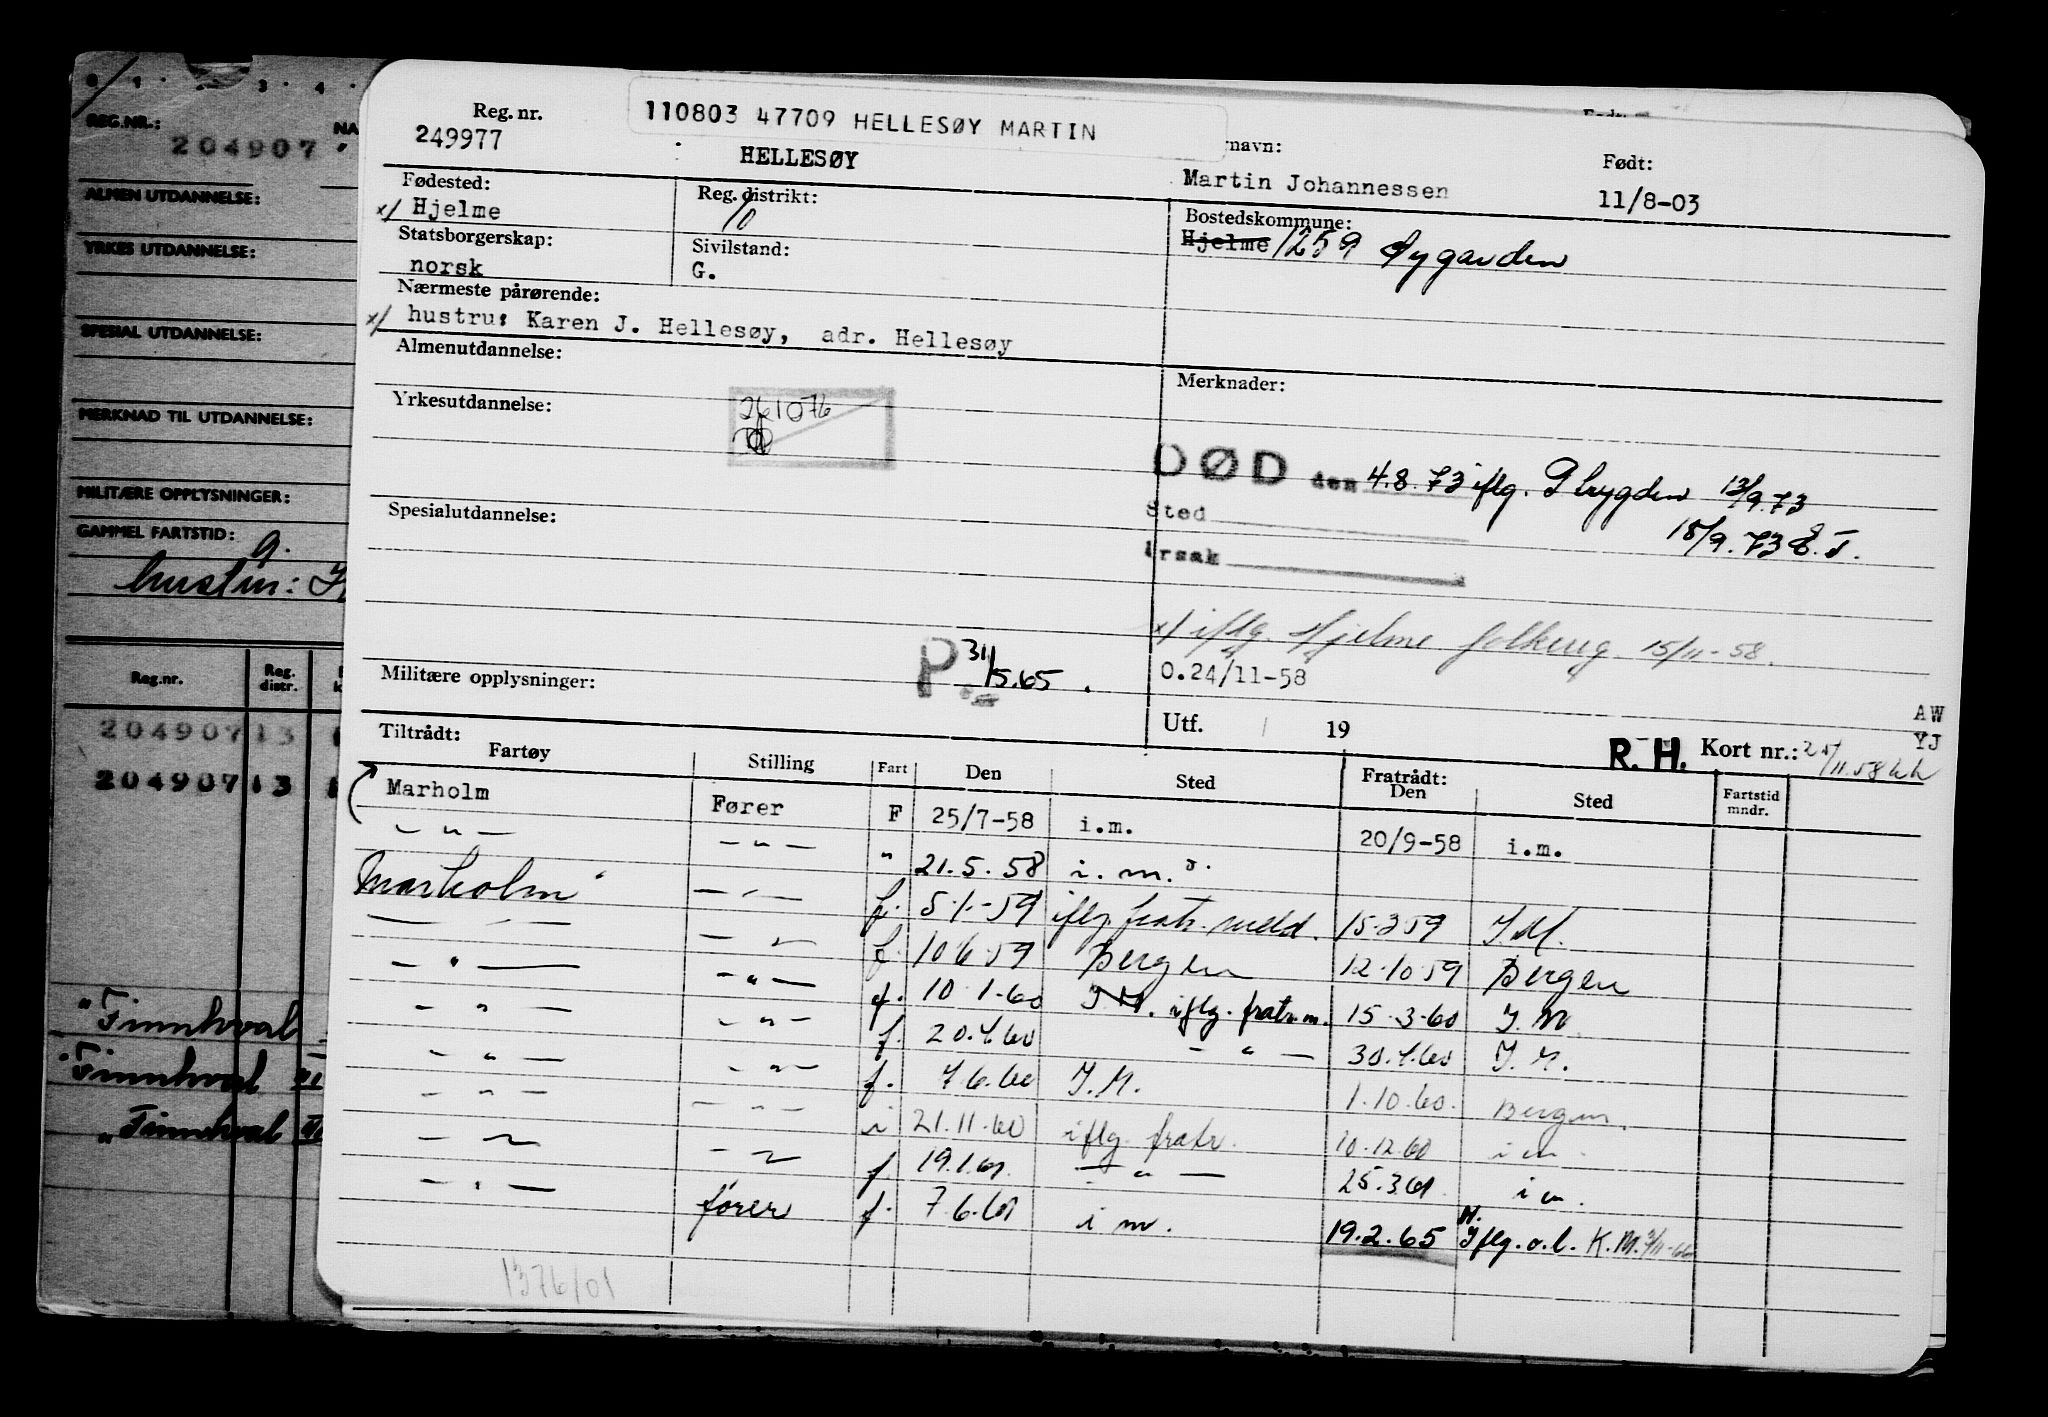 0 1 . 3 . 4 .
REG.NR.: NA
204907
ALMEN UTDANNELSE:
YRKES UTDANNELSE:
SPESIAL UTDANNELSE:
MERKNAD TIL UTDANNELSE:
MILITÆRE OPPLYSNINGER:
GAMMEL FARTSTID: g.
hustru:
Reg.nr. Reg. distr.
204907 13
204907 13
"Finnhval
"Finnhval
"Finnhval
110803 47709 HELLESØY MARTIN
Reg. nr. navn: Født:
249977 HELLESØY Martin Johannessen 11/8-03
Fødested: Reg. distrikt: Bostedskommune:
x/ Hjelme 10 Hjelme 1259 Øygarden
Statsborgerskap: Sivilstand:
norsk G.
Nærmeste pårørende:
x/ hustru: Karen J. Hellesøy, adr. Hellesøy
Almenutdannelse: Merknader:
Yrkesutdannelse: 261076
DØD den 4.8.73 iflg. 13/9.73
Sted 18/9.73 E.T.
Spesialutdannelse: Årsak
x/ iflg. Hjelme folkereg. 15/11-58.
Militære opplysninger: P 31/5.65. 0.24/11-58
Utf. 19 AW
R.H. Kort nr.: YJ
Tiltrådt: Fratrådt:
Fartøy Stilling Fart Den Sted Den Sted Fartstid mndr.
Marholm Fører F 25/7-58 i.m. 20/9-58 i.m.
— " — — " — " 21.5.58 i.m.
Marholm — " — f. 5.1.-59 iflg fratr. meld. 15.3.59 I.M.
— " — — " — f. 10.6.59 Bergen 12.10.59 Bergen
— " — — " — f. 10.1.60 I.M. iflg. fratr.m. 15.3.60 I.M.
— " — — " — f. 20.4.60 — " — 30.4.60 I.M.
— " — — " — f. 7.6.60 I.M. 1.10.60. Bergen.
— " — — " — i 21.11.60 iflg. fratr. 10.12.60 i m.
— " — — " — f 19.1.61. — " — 25.3.61. i m.
— " — fører f. 7.6.61 i m. 19.2.65 Iflg. o.l. K.M.
1376/01